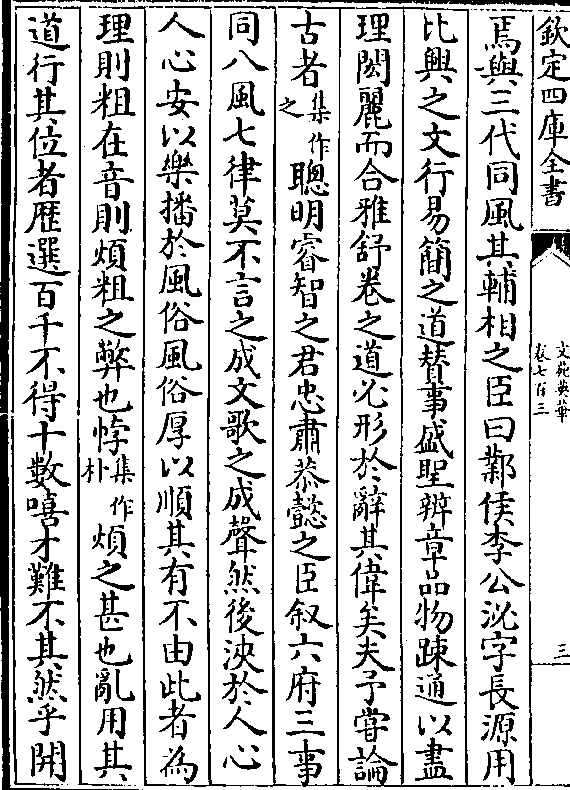 欽定四庫全書
文苑英華
卷七百三
三
焉與三代同風其輔相之臣曰鄴侯李公泌字長源用
比興之文行易簡之道賛事盛聖辨章品物踈通以盡
理閎麗而合雅舒卷之道必形於辭其偉矣夫予嘗論
古者集作之聰明睿智之君忠肅恭懿之臣叙六府三事
同八風七律莫不言之成文歌之成聲然後浹於人心
人心安以樂播於風俗風俗厚以順其有不由此者為
理則粗在音則煩粗之弊也悖集作朴煩之甚也亂用其
道行其位者歴選百千不得十數嘻才難不其然乎開